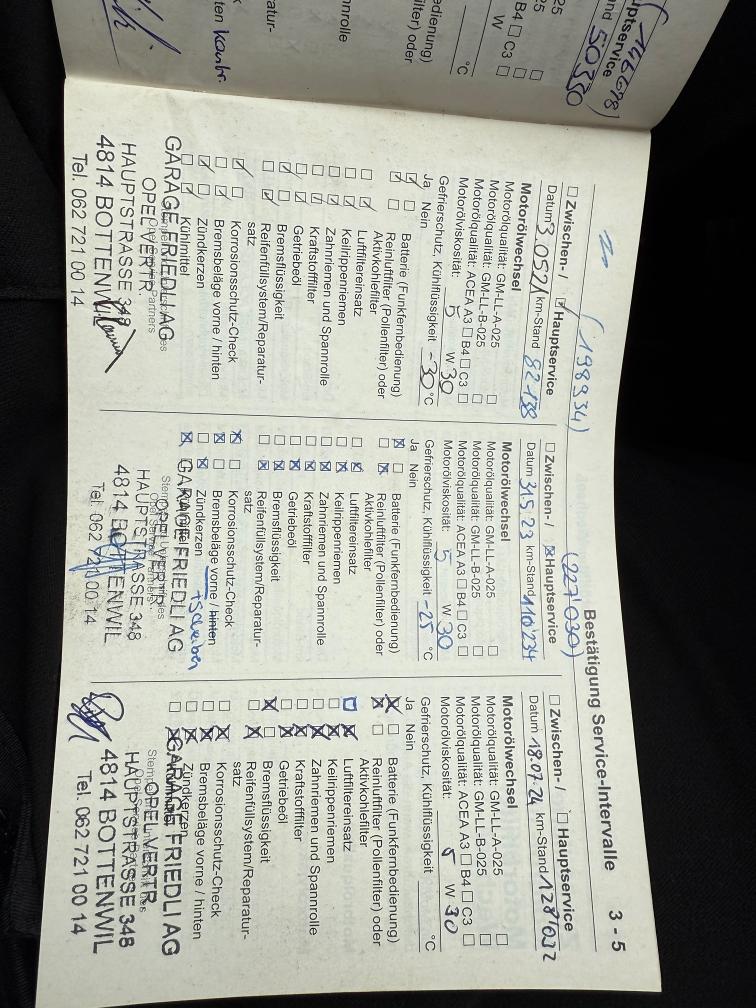 ptservice
50350
B4 ☐ C3 ☐
W
°C
edienung)
ilter) oder
nnrolle
atur-
ten kontr.
Bestätigung Service-Intervalle 3 - 5
(198934)
☐ Zwischen- / ☑ Hauptservice
km-Stand 82'188
Motorölwechsel
Motorölqualität: GM-LL-A-025 ☐
Motorölqualität: GM-LL-B-025 ☐
Motorölqualität: ACEA A3 ☐ B4 ☐ C3 ☐
Motorölviskosität: 5 W 30
Gefrierschutz, Kühlflüssigkeit -30 °C
Ja Nein
Batterie (Funkfernbedienung)
Reinluftfilter (Pollenfilter) oder
Aktivkohlefilter
Luftfiltereinsatz
Keilrippenriemen
Zahnriemen und Spannrolle
Kraftstofffilter
Getriebeöl
Bremsflüssigkeit
Reifenfüllsystem/Reparatur-
satz
Korrosionsschutz-Check
Bremsbeläge vorne / hinten
Zündkerzen
Kühlmittel
GARAGE FRIEDLI AG
OPEL VERTR.
HAUPTSTRASSE 348
4814 BOTTENWIL
Tel. 062 721 00 14
(227030)
☐ Zwischen- / ☒ Hauptservice
Datum 31.5.23 km-Stand 110'234
Motorölwechsel
Motorölqualität: GM-LL-A-025 ☐
Motorölqualität: GM-LL-B-025 ☐
Motorölqualität: ACEA A3 ☐ B4 ☐ C3 ☐
Motorölviskosität: 5 W 30
Gefrierschutz, Kühlflüssigkeit -25 °C
Ja Nein
Batterie (Funkfernbedienung)
Reinluftfilter (Pollenfilter) oder
Aktivkohlefilter
Luftfiltereinsatz
Keilrippenriemen
Zahnriemen und Spannrolle
Kraftstofffilter
Getriebeöl
Bremsflüssigkeit
Reifenfüllsystem/Reparatur-
satz
Korrosionsschutz-Check
Bremsbeläge vorne / hinten
Zündkerzen + Scheiben
GARAGE FRIEDLI AG
OPEL VERTR.
HAUPTSTRASSE 348
4814 BOTTENWIL
Tel. 062 721 00 14
☐ Zwischen- / ☐ Hauptservice
Datum 18.07.24 km-Stand 128'032
Motorölwechsel
Motorölqualität: GM-LL-A-025 ☐
Motorölqualität: GM-LL-B-025 ☐
Motorölqualität: ACEA A3 ☐ B4 ☐ C3 ☐
Motorölviskosität: 5 W 30
Gefrierschutz, Kühlflüssigkeit °C
Ja Nein
Batterie (Funkfernbedienung)
Reinluftfilter (Pollenfilter) oder
Aktivkohlefilter
Luftfiltereinsatz
Keilrippenriemen
Zahnriemen und Spannrolle
Kraftstofffilter
Getriebeöl
Bremsflüssigkeit
Reifenfüllsystem/Reparatur-
satz
Korrosionsschutz-Check
Bremsbeläge vorne / hinten
Zündkerzen
GARAGE FRIEDLI AG
OPEL VERTR.
HAUPTSTRASSE 348
4814 BOTTENWIL
Tel. 062 721 00 14